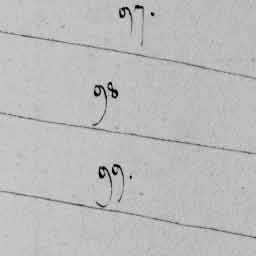 97.
98
99.